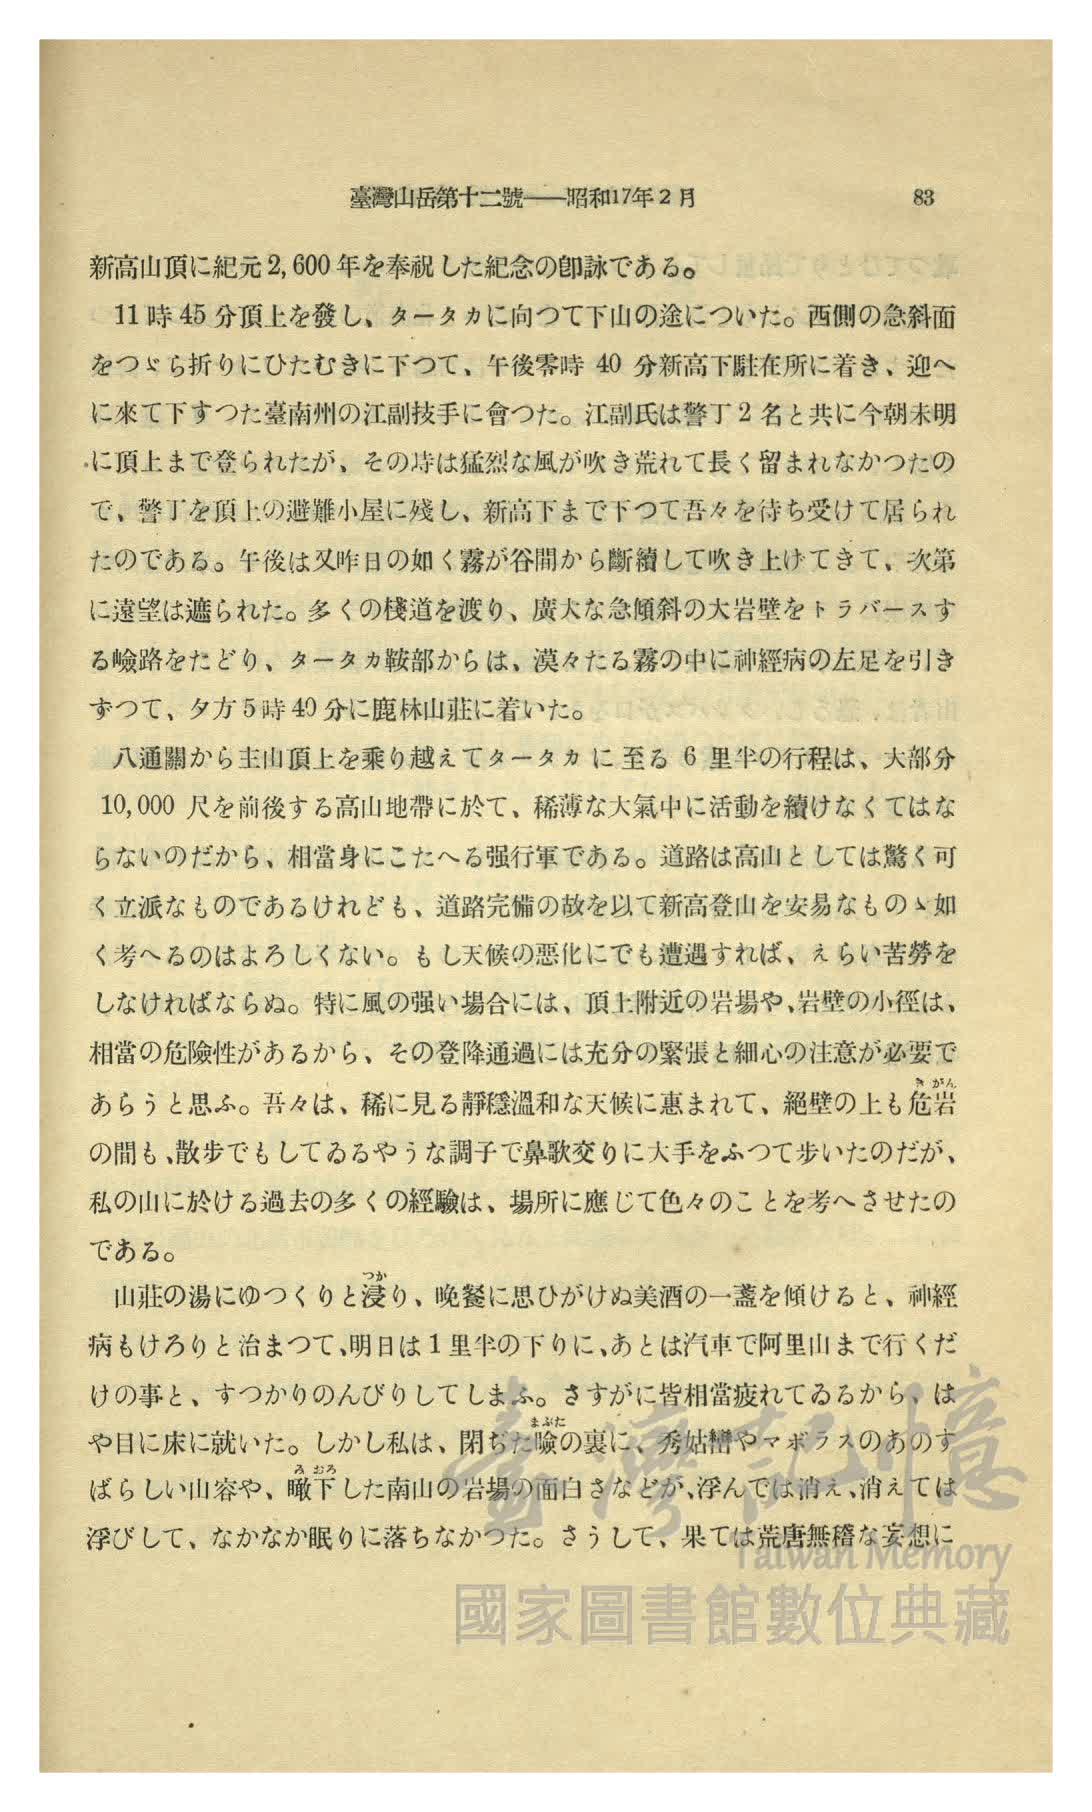 臺灣山岳第十二號——昭和17年2月 83
新高山頂に紀元2,600年を奉祝した紀念の卽詠である。
11時45分頂上を發し、タータカに向つて下山の途についた。西側の急斜面
をつゞら折りにひたむきに下つて、午後零時 40 分新高下駐在所に着き、迎へ
に來て下すつた臺南州の江副技手に會つた。江副氏は警丁2名と共に今朝未明
に頂上まで登られたが、その時は猛烈な風が吹き荒れて長く留まれなかつたの
で、警丁を頂上の避難小屋に殘し、新高下まで下つて吾々を待ち受けて居られ
たのである。午後は又昨日の如く霧が谷間から斷續して吹き上げてきて、次第
に遠望は遮られた。多くの棧道を渡り、廣大な急傾斜の大岩壁をトラバースす
る嶮路をたどり、タータカ鞍部からは、漠々たる霧の中に神經病の左足を引き
ずつて、夕方5時40分に鹿林山莊に着いた。
八通關から主山頂上を乘り越えてタータカに至る 6 里半の行程は、大部分
10,000 尺を前後する高山地帶に於て、稀薄な大氣中に活動を續けなくてはな
らないのだから、相當身にこたへる强行軍である。道路は高山としては驚く可
く立派なものであるけれども、道路完備の故を以て新高登山を安易なものゝ如
く考へるのはよろしくない。もし天候の惡化にでも遭遇すれば、えらい苦勞を
しなければならぬ。特に風の强い場合には、頂上附近の岩場や、岩壁の小徑は、
相當の危險性があるから、その登降通過には充分の緊張と細心の注意が必要で
あらうと思ふ。吾々は、稀に見る靜穩溫和な天候に惠まれて、絕壁の上も危岩
の間も、散步でもしてゐるやうな調子で鼻歌交りに大手をふつて步いたのだが、
私の山に於ける過去の多くの經驗は、場所に應じて色々のことを考へさせたの
である。
山莊の湯にゆつくりと浸り、晩餐に思ひがけぬ美酒の一盞を傾けると、神經
病もけろりと治まつて、明日は1里半の下りに、あとは汽車で阿里山まで行くだ
けの事と、すつかりのんびりしてしまふ。さすがに皆相當疲れてゐるから、は
や目に床に就いた。しかし私は、閉ぢた瞼の裏に、秀姑巒やマボラスのあのす
ばらしい山容や、瞰下した南山の岩場の面白さなどが、浮んでは消え、消えては
浮びして、なかなか眠りに落ちなかつた。さうして、果ては荒唐無稽な妄想に
臺灣記憶
Taiwan Memory
國家圖書館數位典藏